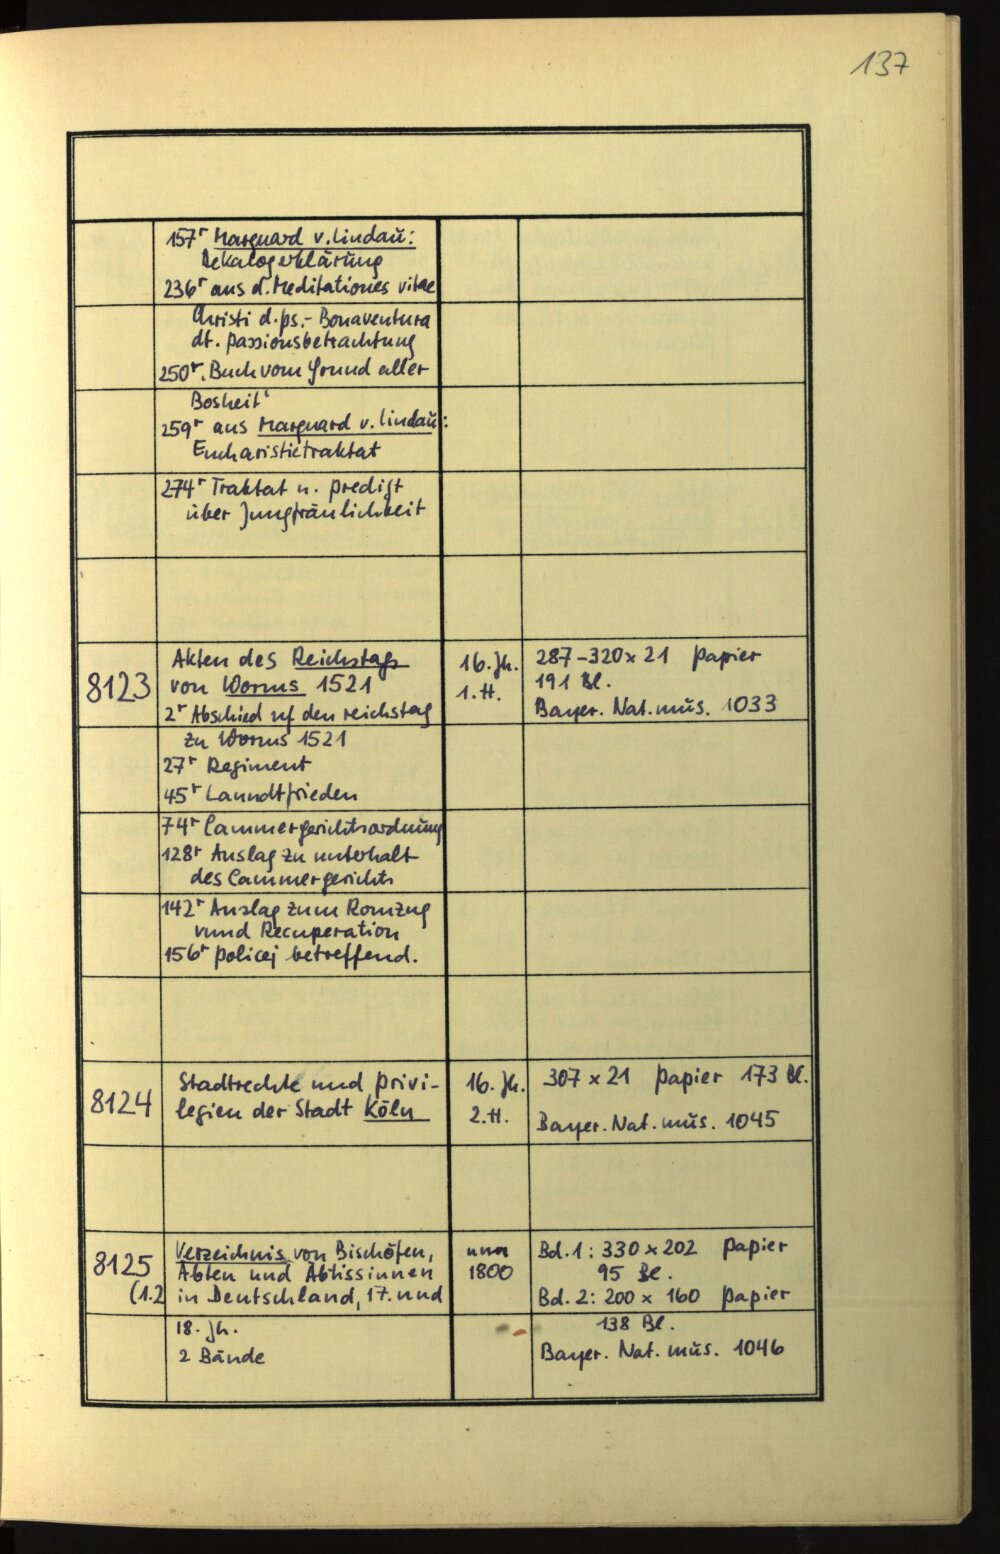 137
157r Marquard v. Lindau:
Dekalogerklärung
236r aus d. Meditationes vitae
Christi d. ps.-Bonaventura
dt. Passionsbetrachtung
250r. Buch vom Grund aller
Bosheit'
259r aus Marquard v. Lindau:
Eucharistietraktat
274r Traktat u. Predigt
über Jungfräulichkeit
8123
Akten des Reichstags
von Worms 1521
2r Abschied uf den reichstag
zu Worms 1521
27r Regiment
45r Lanndtfrieden
74r Cammergerichtsordnung
128r Anslag zu unterhalt
des Cammergerichts
142r Anslag zum Romzug
vnnd Recuperation
156r policej betreffend.
16. Jh.
1. H.
287-320 x 21 Papier
191 Bl.
Bayer. Nat. mus. 1033
8124
Stadtrechte und Privi-
legien der Stadt Köln
16. Jh.
2. H.
307 x 21 Papier 173 Bl.
Bayer. Nat. mus. 1045
8125
(1.2
Verzeichnis von Bischöfen,
Äbten und Äbtissinnen
in Deutschland, 17. und
18. Jh.
2 Bände
um
1800
Bd. 1: 330 x 202 Papier
95 Bl.
Bd. 2: 200 x 160 Papier
138 Bl.
Bayer. Nat. mus. 1046